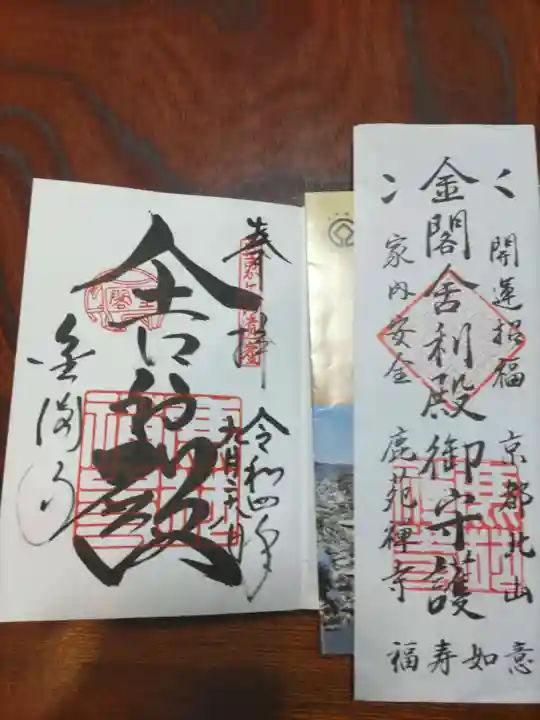 奉拝
令和四年
九月二八日
舎利殿
金閣寺
開運招福 京都北山
金閣舎利殿御守護
家内安全 鹿苑禅寺
福寿如意